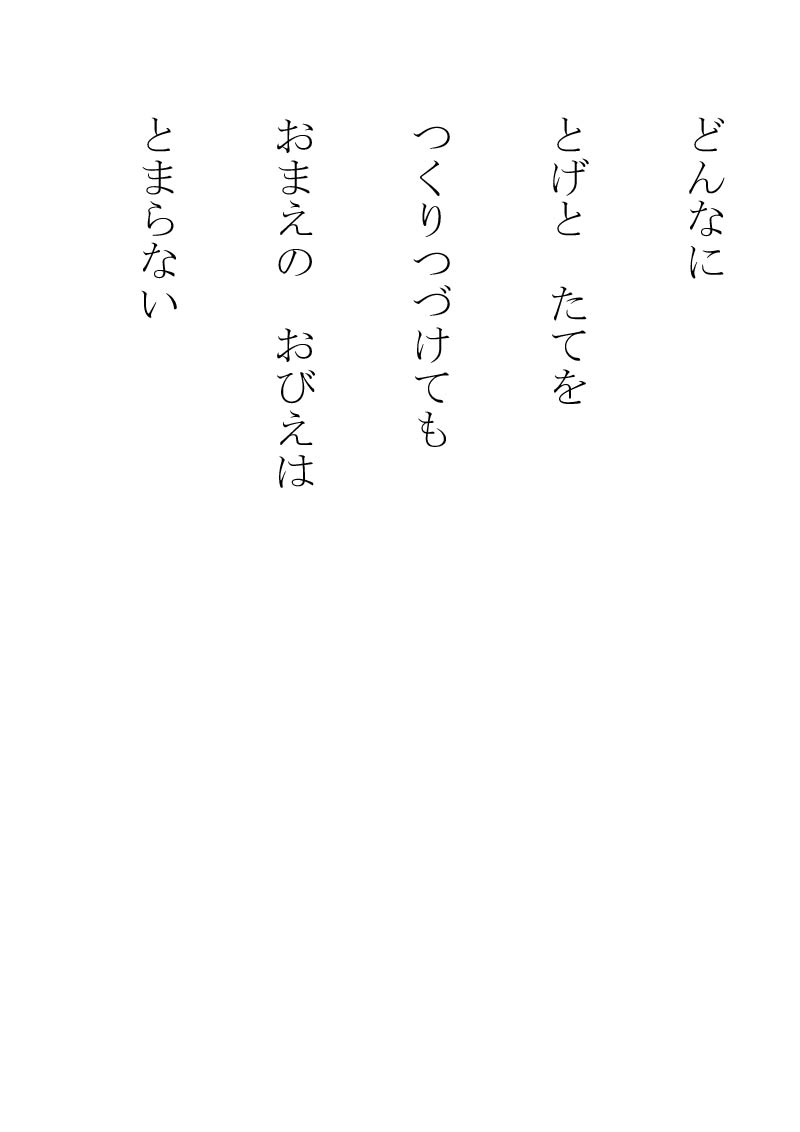 どんなに
とげと　たてを
つくりつづけても
おまえの　おびえは
とまらない